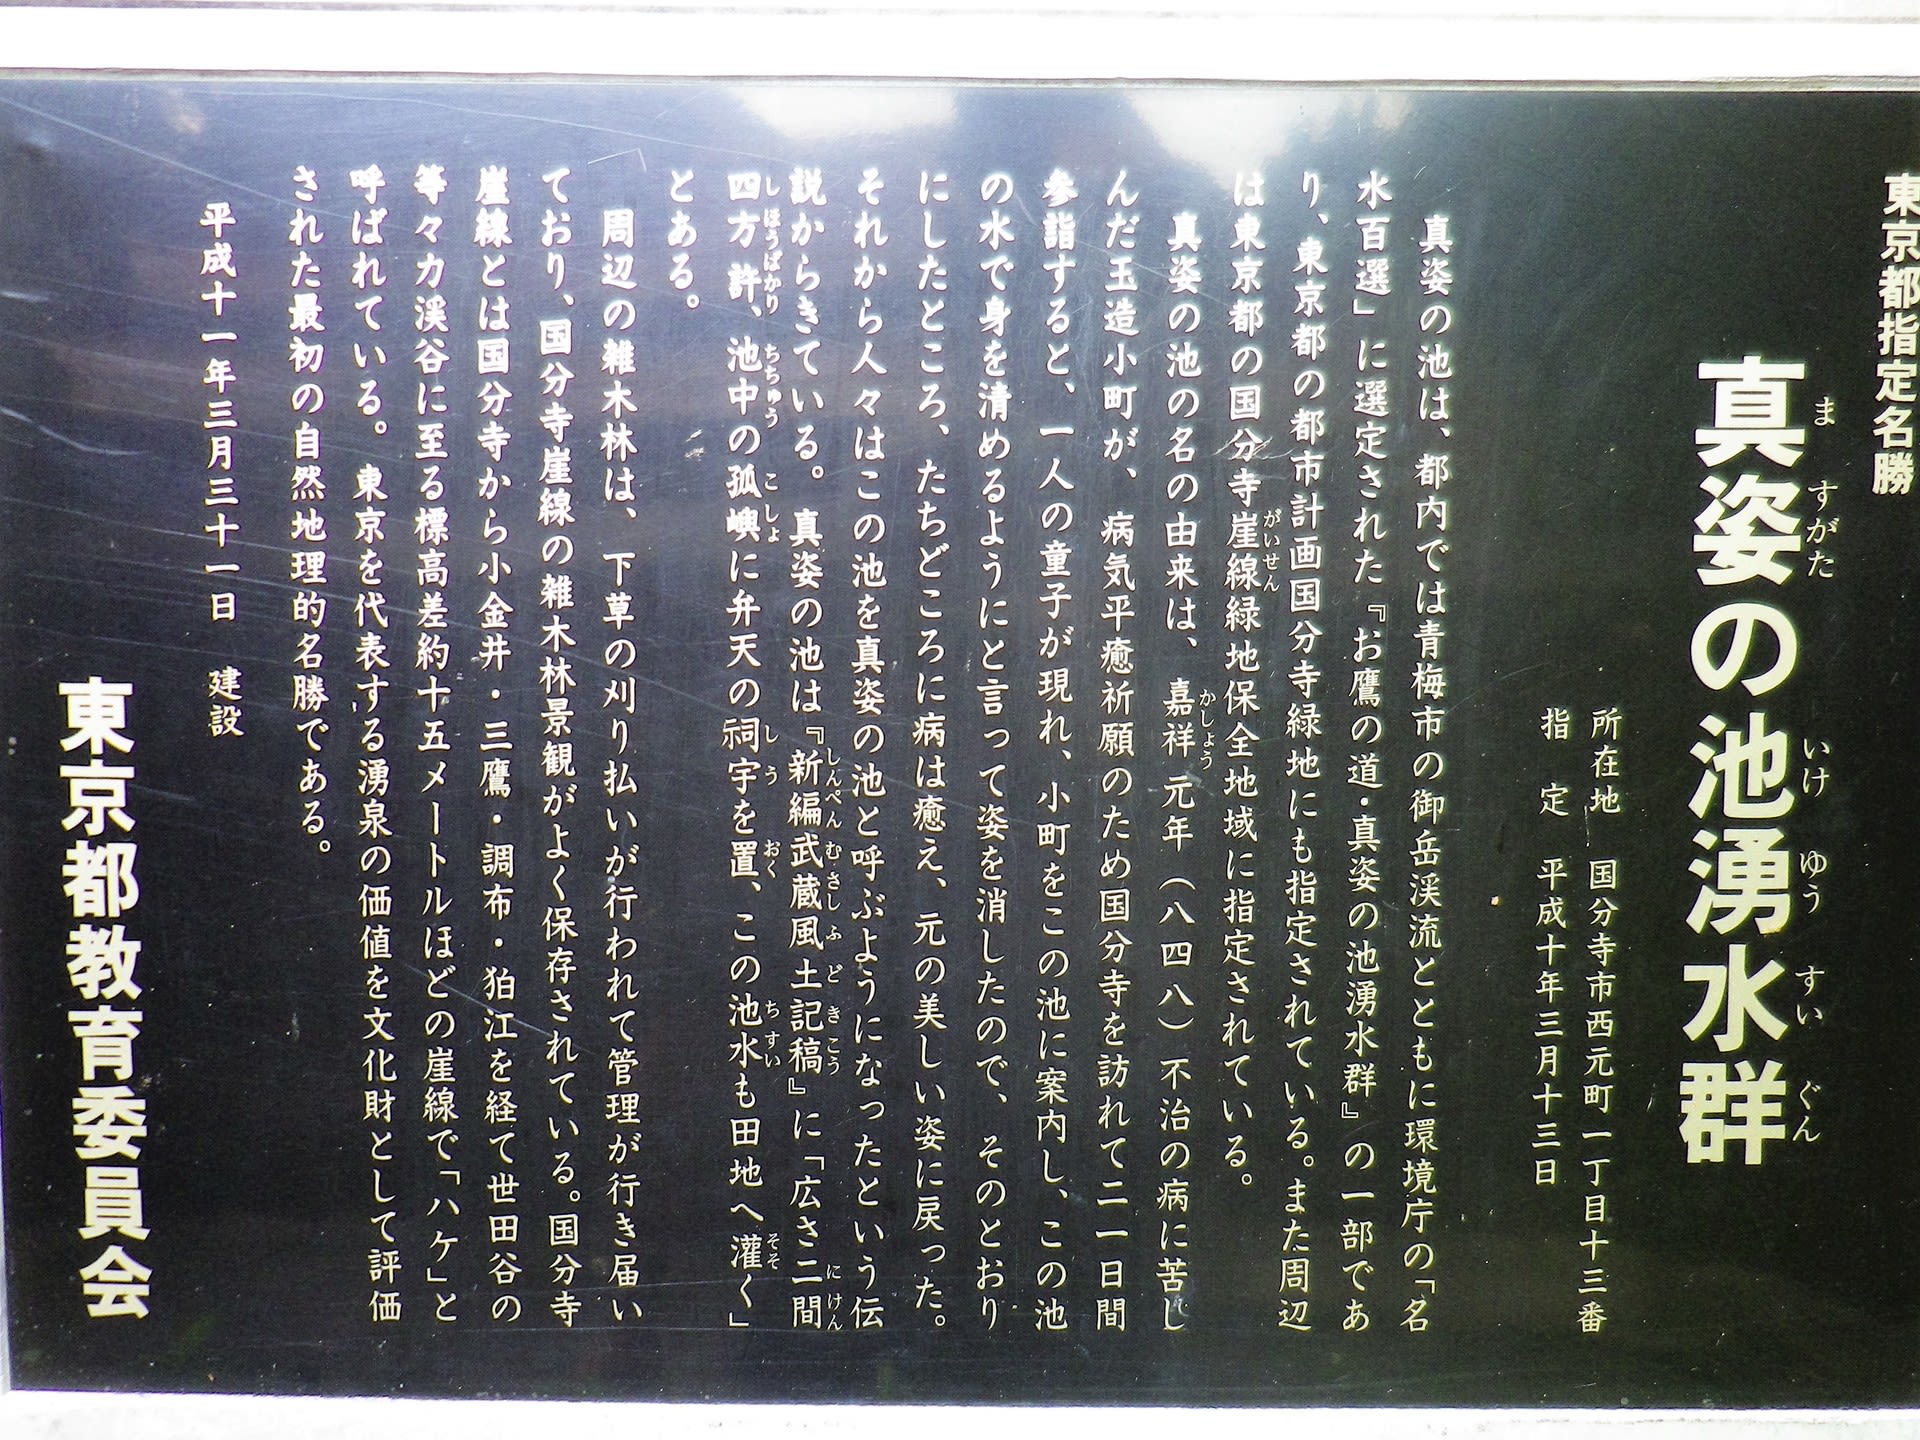 東京都指定名勝
真姿の池湧水群
ま すがた いけ ゆう すい ぐん
所在地 国分寺市西元町一丁目十三番
指定 平成十年三月十三日
真姿の池は、都内では青梅市の御岳渓流とともに環境庁の「名
水百選」に選定された『お鷹の道・真姿の池湧水群』の一部であ
り、東京都の都市計画国分寺緑地にも指定されている。また周辺
は東京都の国分寺崖線緑地保全地域に指定されている。
がいせん
真姿の池の名の由来は、嘉祥元年（八四八）不治の病に苦し
かしょう
んだ玉造小町が、病気平癒祈願のため国分寺を訪れて二一日間
参詣すると、一人の童子が現れ、小町をこの池に案内し、この池
の水で身を清めるようにと言って姿を消したので、そのとおり
にしたところ、たちどころに病は癒え、元の美しい姿に戻った。
それから人々はこの池を真姿の池と呼ぶようになったという伝
説からきている。真姿の池は『新編武蔵風土記稿』に「広さ二間
しんぺんむさしふどきこう にけん
四方許、池中の孤嶼に弁天の祠宇を置、この池水も田地へ灌く」
しほうばかり ちちゅう こしょ しう おく ちすい そそ
とある。
周辺の雑木林は、下草の刈り払いが行われて管理が行き届い
ており、国分寺崖線の雑木林景観がよく保存されている。国分寺
崖線とは国分寺から小金井・三鷹・調布・狛江を経て世田谷の
等々力渓谷に至る標高差約十五メートルほどの崖線で「ハケ」と
呼ばれている。東京を代表する湧泉の価値を文化財として評価
された最初の自然地理的名勝である。
平成十一年三月三十一日 建設
東京都教育委員会